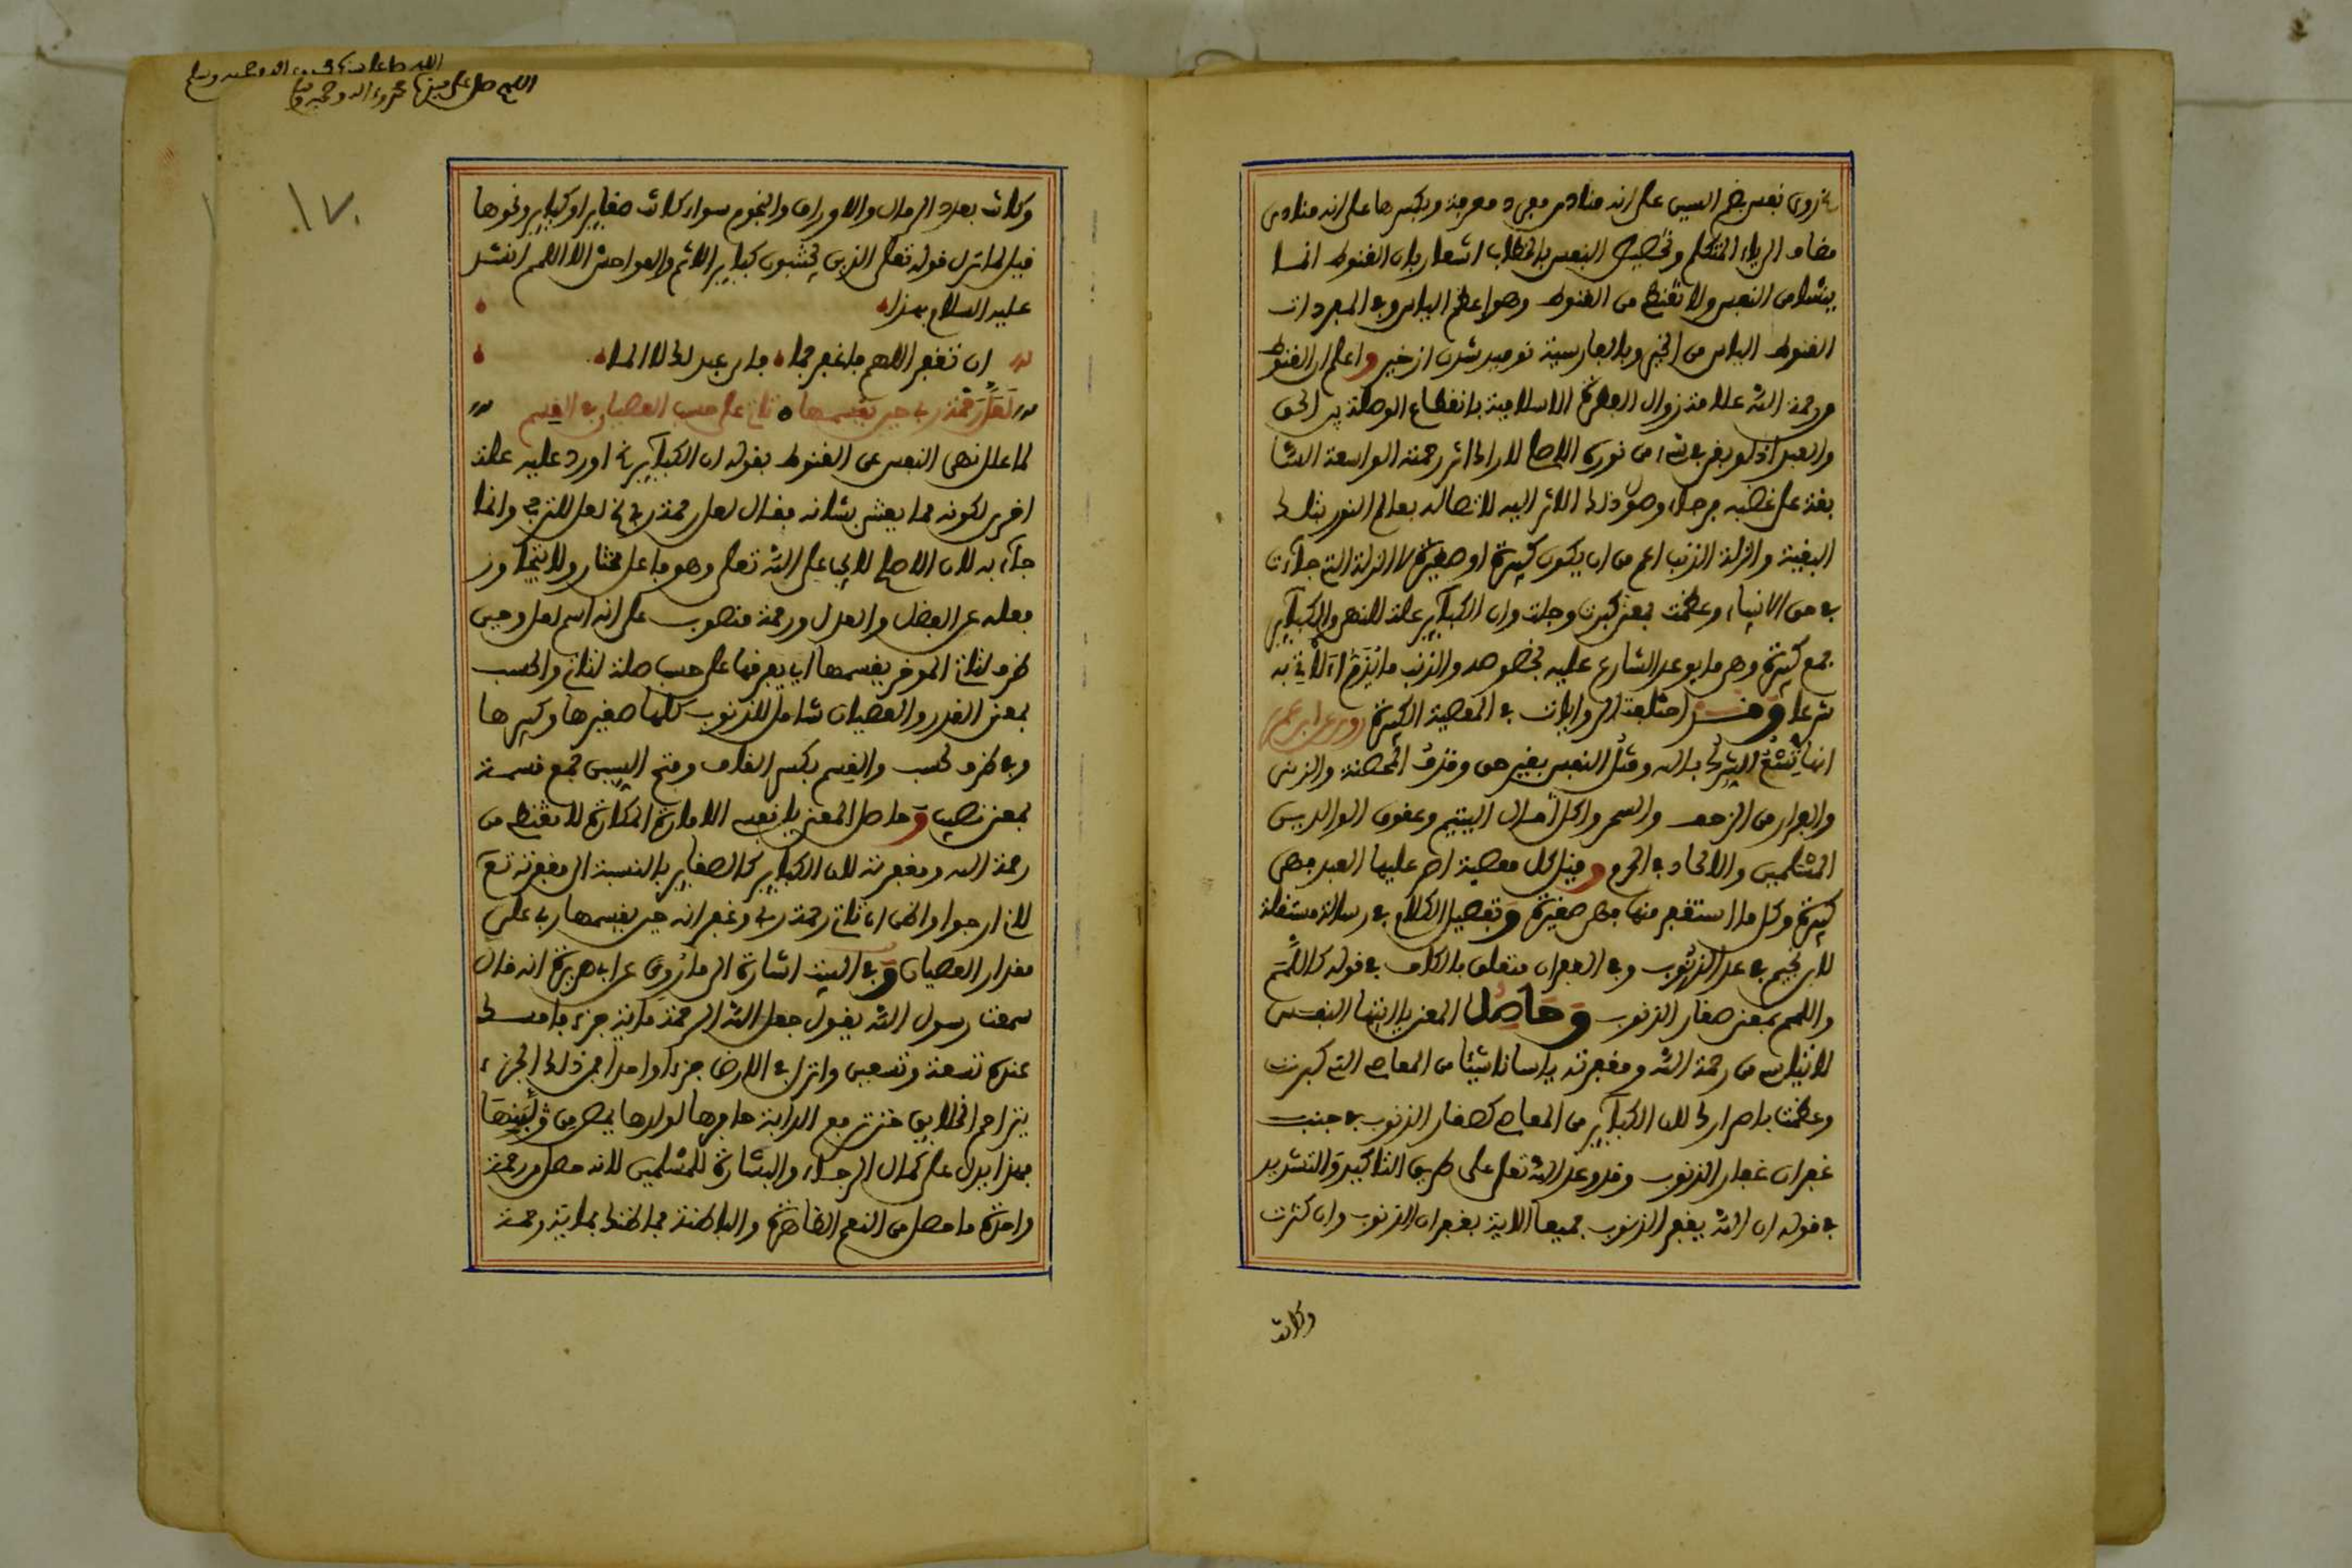 نزوى نفس بضم السين على انه منادى مفرد معرفة وبكسرها على انه منادى
مضاف الى ياء المتكلم وتخصيص النفس بالخطاب اشعار بان القنوط انما
ينشا من النفس ولا تقنطى من القنوط وهو اعظم الياس وفى المفردات
القنوط الياس من الخير وبالفارسية نوميد شدن از خير واعلم ان القنوط
من رحمة الله علامة زوال الفطرة الاسلامية بانقطاع الوصلة بين الحق
والعبد اذ لو بقى شىء من نوره الاصلى لادرك اثر رحمته الواسعة السا
بقة على غضبه فرجاء وصول ذلك الاثر اليه لاتصاله بعالم النور بتلك
البقية والزلة الذنب اعم من ان يكون كبيرة او صغيرة لا الزلة التى جاءت
فى حق الانبياء وعظمت بمعنى كبرت وجلت وان الكبآئر علة للنهى والكبآئر
جمع كبيرة وهى ما يوعد الشارع عليه بخصوصه والذنب ما يذم الآتى به
شرعا وقد اختلفت الروايات فى المعصية الكبيرة روى عن ابن عمر
انها تسع الشرك بالله وقتل النفس بغير حق وقذف المحصنة والزنى
والفرار من الزحف والسحر واكل امال اليتيم وعقوق الوالدين
المسلمين والالحاد فى الحرم وقيل كل معصية اصر عليها العبد فهى
كبيرة وكل ما استغفر منها فهى صغيرة وتفصيل الكلام فى رسالة مستقلة
لابن نجيم فى عد الذنوب وفى الغفران متعلق بالكاف فى قوله كاللمم
واللمم بمعنى صغار الذنوب وحاصل المعنى يا ايتها النفس
لا تياسى من رحمة الله ومغفرته يا سائلا شيئا من المعاصى التى كبرت
وعظمت باصرارك لان الكبآئر من المعاصى كصغار الذنوب فى جنب
غفران غفار الذنوب وقد وعد الله تعلى على طريق التاكيد والتشديد
فى قوله ان الله يغفر الذنوب جميعا الاية بغفران الذنوب وان كثرت
وكانت
اللهم صل على سيدنا محمد واله وصحبه وسلم
١٧٠
وكانت بعدد الرمال والاوراق والنجوم سواء كانت صغاير او كباير ونحوها
قيل لما نزل قوله تعلى الذين يجتنبون كباير الاثم والفواحش الا اللمم انشد
عليه السلام هذا
ان تغفر اللهم فاغفر جما فاى عبد لك لا الما
لعل رحمة ربى حين يقسمها تاتى على حسب العصيان فى القسم
لما علل نهى النفس عن القنوط بقوله ان الكبآير اورد عليه علة
اخرى لكونه مما يعتنى بشانه فقال لعل رحمة ربى لعل للترجى وانما
جآء به لان الاصل لا يجب على الله تعلى وهو فاعل مختار ولا يتجاوز
فعله عن الفضل والعدل ورحمة منصوب على انه اسم لعل وحين
ظرف لتاتى الموخر يقسمها اى يفرقها على حسب صلة لتاتى والحسب
بمعنى القدر والعصيان شامل للذنوب كلها صغيرها وكبيرها
وفى ظرف لحسب والقسم بكسر القاف وفتح السين جمع قسمة
بمعنى نصيب وحاصل المعنى يا نفس الامارة المكارة لا تقنطى من
رحمة الله ومغفرته لان الكباير كالصغاير بالنسبة الى مغفرته تع
لانى ارجوا واظن ان تاتى رحمة ربى وغفرانه حين يقسمها ربى على
مقدار العصيان وفى البيت اشارة الى ما روى عن ابى هريرة انه قال
سمعت رسول الله يقول جعل الله الرحمة مائة جزء فامسك
عنده تسعة وتسعين وانزل فى الارض جزءا واحدا فمن ذلك الجزء
يتراحم الخلايق حتى ترفع الدابة حافرها لولدها
فهذا يدل على كمال الرجاء والبشارة للمسلمين لانه حصل من رحمة
واحدة ما حصل من النعم الظاهرة والباطنة فما ظنك بماية رحمة